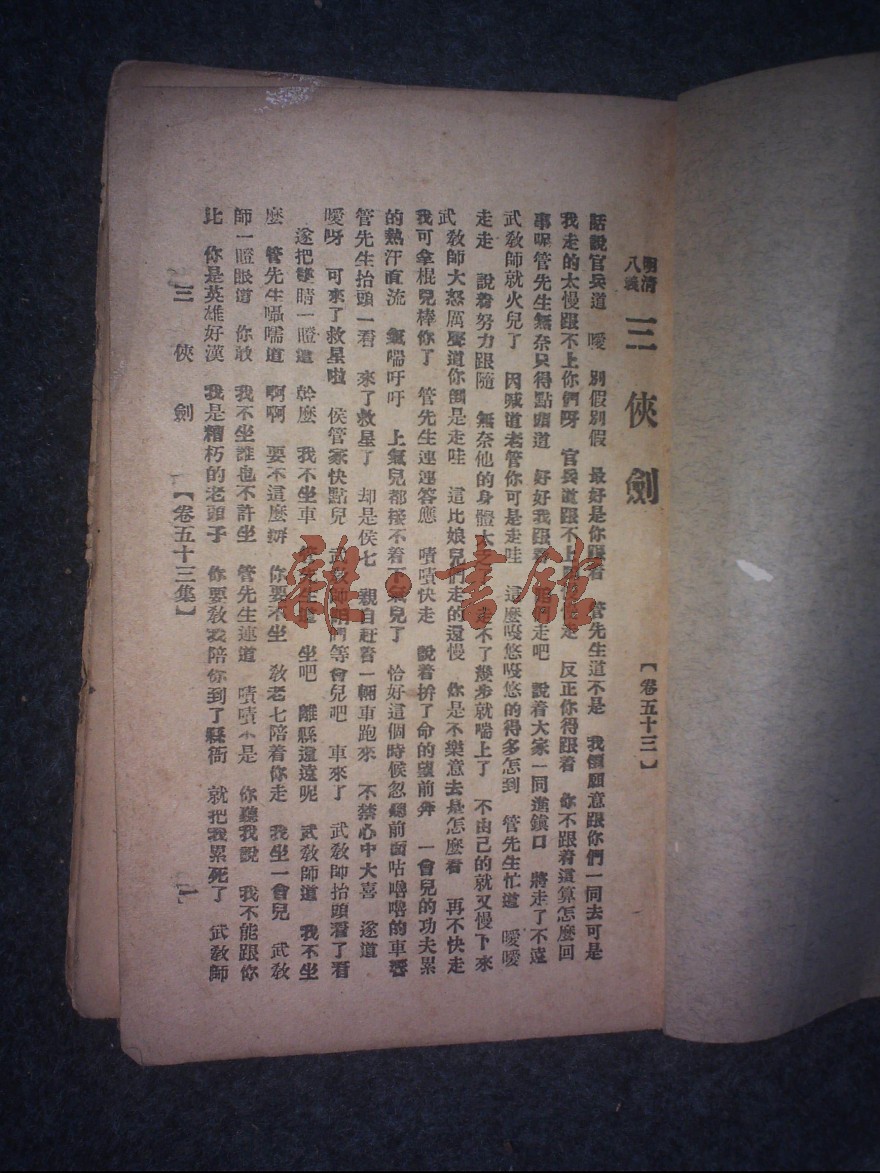 明清八義 三俠劍 【卷五十三】
話說官兵道 噯 別假別假 最好是你跟着 管先生道不是 我倒願意跟你們一同去可是
我走的太慢跟不上你們呀 官兵道跟不上 反正你得跟着 你不跟着這算怎麼回
事呢管先生無奈只得點頭道 好好我跟着 你們走吧 說着大家一同進鎮口 將走了不遠
武教師就火兒了 因喊道老管你可是走哇 這麼嘎悠嘎悠的得多怎到 管先生忙道 噯噯
走走 說着努力跟隨 無奈他的身體太 走不了幾步就喘上了 不由己的就又慢下來
武教師大怒厲聲道你倒是走哇 這比娘兒們走的還慢 你是不樂意去是怎麼看 再不快走
我可拿棍兒棒你了 管先生連連答應 嘖嘖快走 說着拚了命的望前奔 一會兒的功夫累
的熱汗直流 氣喘吁吁 上氣兒都接不着下氣兒了 恰好這個時候忽聽前面咕嚕嚕的車響
管先生抬頭一看 來了救星了 却是侯七 親自赶着一輛車跑來 不禁心中大喜 遂道
噯呀 可來了救星啦 侯管家快點兒 武教師咱們等會兒吧 車來了 武教師抬頭看了看
遂把雙睛一瞪道 幹麼 我不坐車 管先生道 坐吧 離縣還遠呢 武教師道 我不坐
麼 管先生囁嚅道 啊啊 要不這麼辦 你要不坐 教老七陪着你走 我坐一會兒 武教
師一瞪眼道 你敢 我不坐誰也不許坐 管先生連道 嘖嘖不是 你聽我說 我不能跟你
比 你是英雄好漢 我是糟朽的老頭子 你要教我陪你到了縣衙 就把我累死了 武教師
三俠劍 【卷五十三集】 一
雜·書館